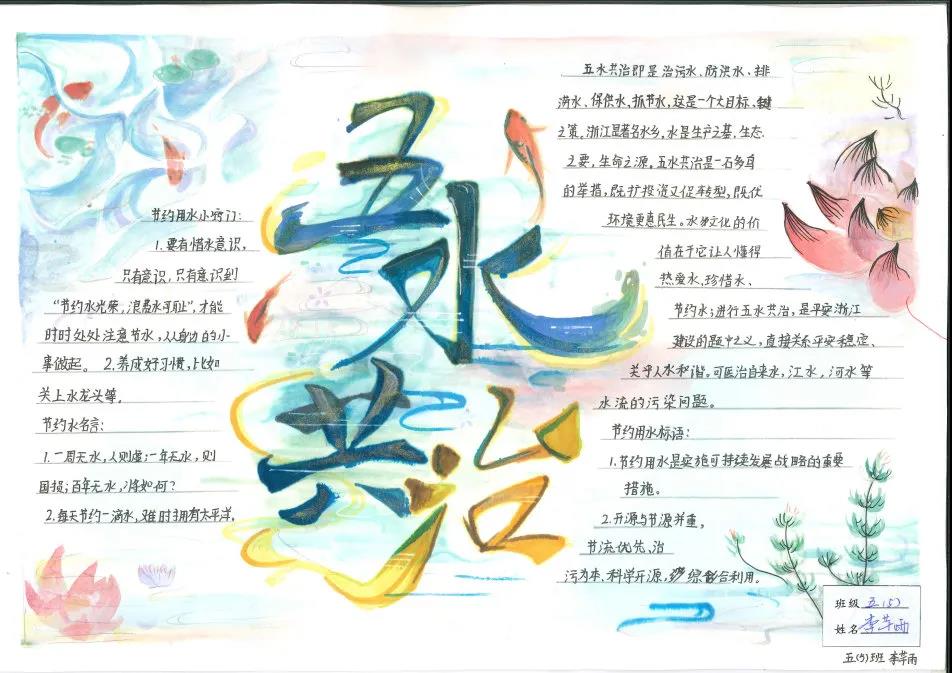 五水共治
节约用水小窍门：
1.要有惜水意识，
只有意识，只有意识到
“节约水光荣，浪费水可耻”，才能
时时处处注意节水，从身边的小
事做起。 2.养成好习惯，比如
关上水龙头等。
节约水名言：
1.一周无水，人则虚；一年无水，则
国损；百年无水，将如何？
2.每天节约一滴水，难时拥有太平洋。
五水共治即是治污水、防洪水、排
涝水、保供水、抓节水，这是一个大目标、键
之策。浙江是著名水乡，水是生产之基，生态
之要，生命之源。五水共治是一石多鸟
的举措，既扩投资又促转型，既优
环境更惠民生。水文化的价
值在于它让人懂得
热爱水、珍惜水、
节约水；进行五水共治，是平安浙江
建设的题中之义，直接关系平安稳定、
关乎人水和谐。可医治自来水，江水，河水等
水流的污染问题。
节约用水标语：
1.节约用水是实施可持续发展战略的重要
措施。
2.开源与节源并重，
节流优先、治
污为本、科学开源，综合利用。
班级 五(5)
姓名 李苹雨
五(5)班 李苹雨